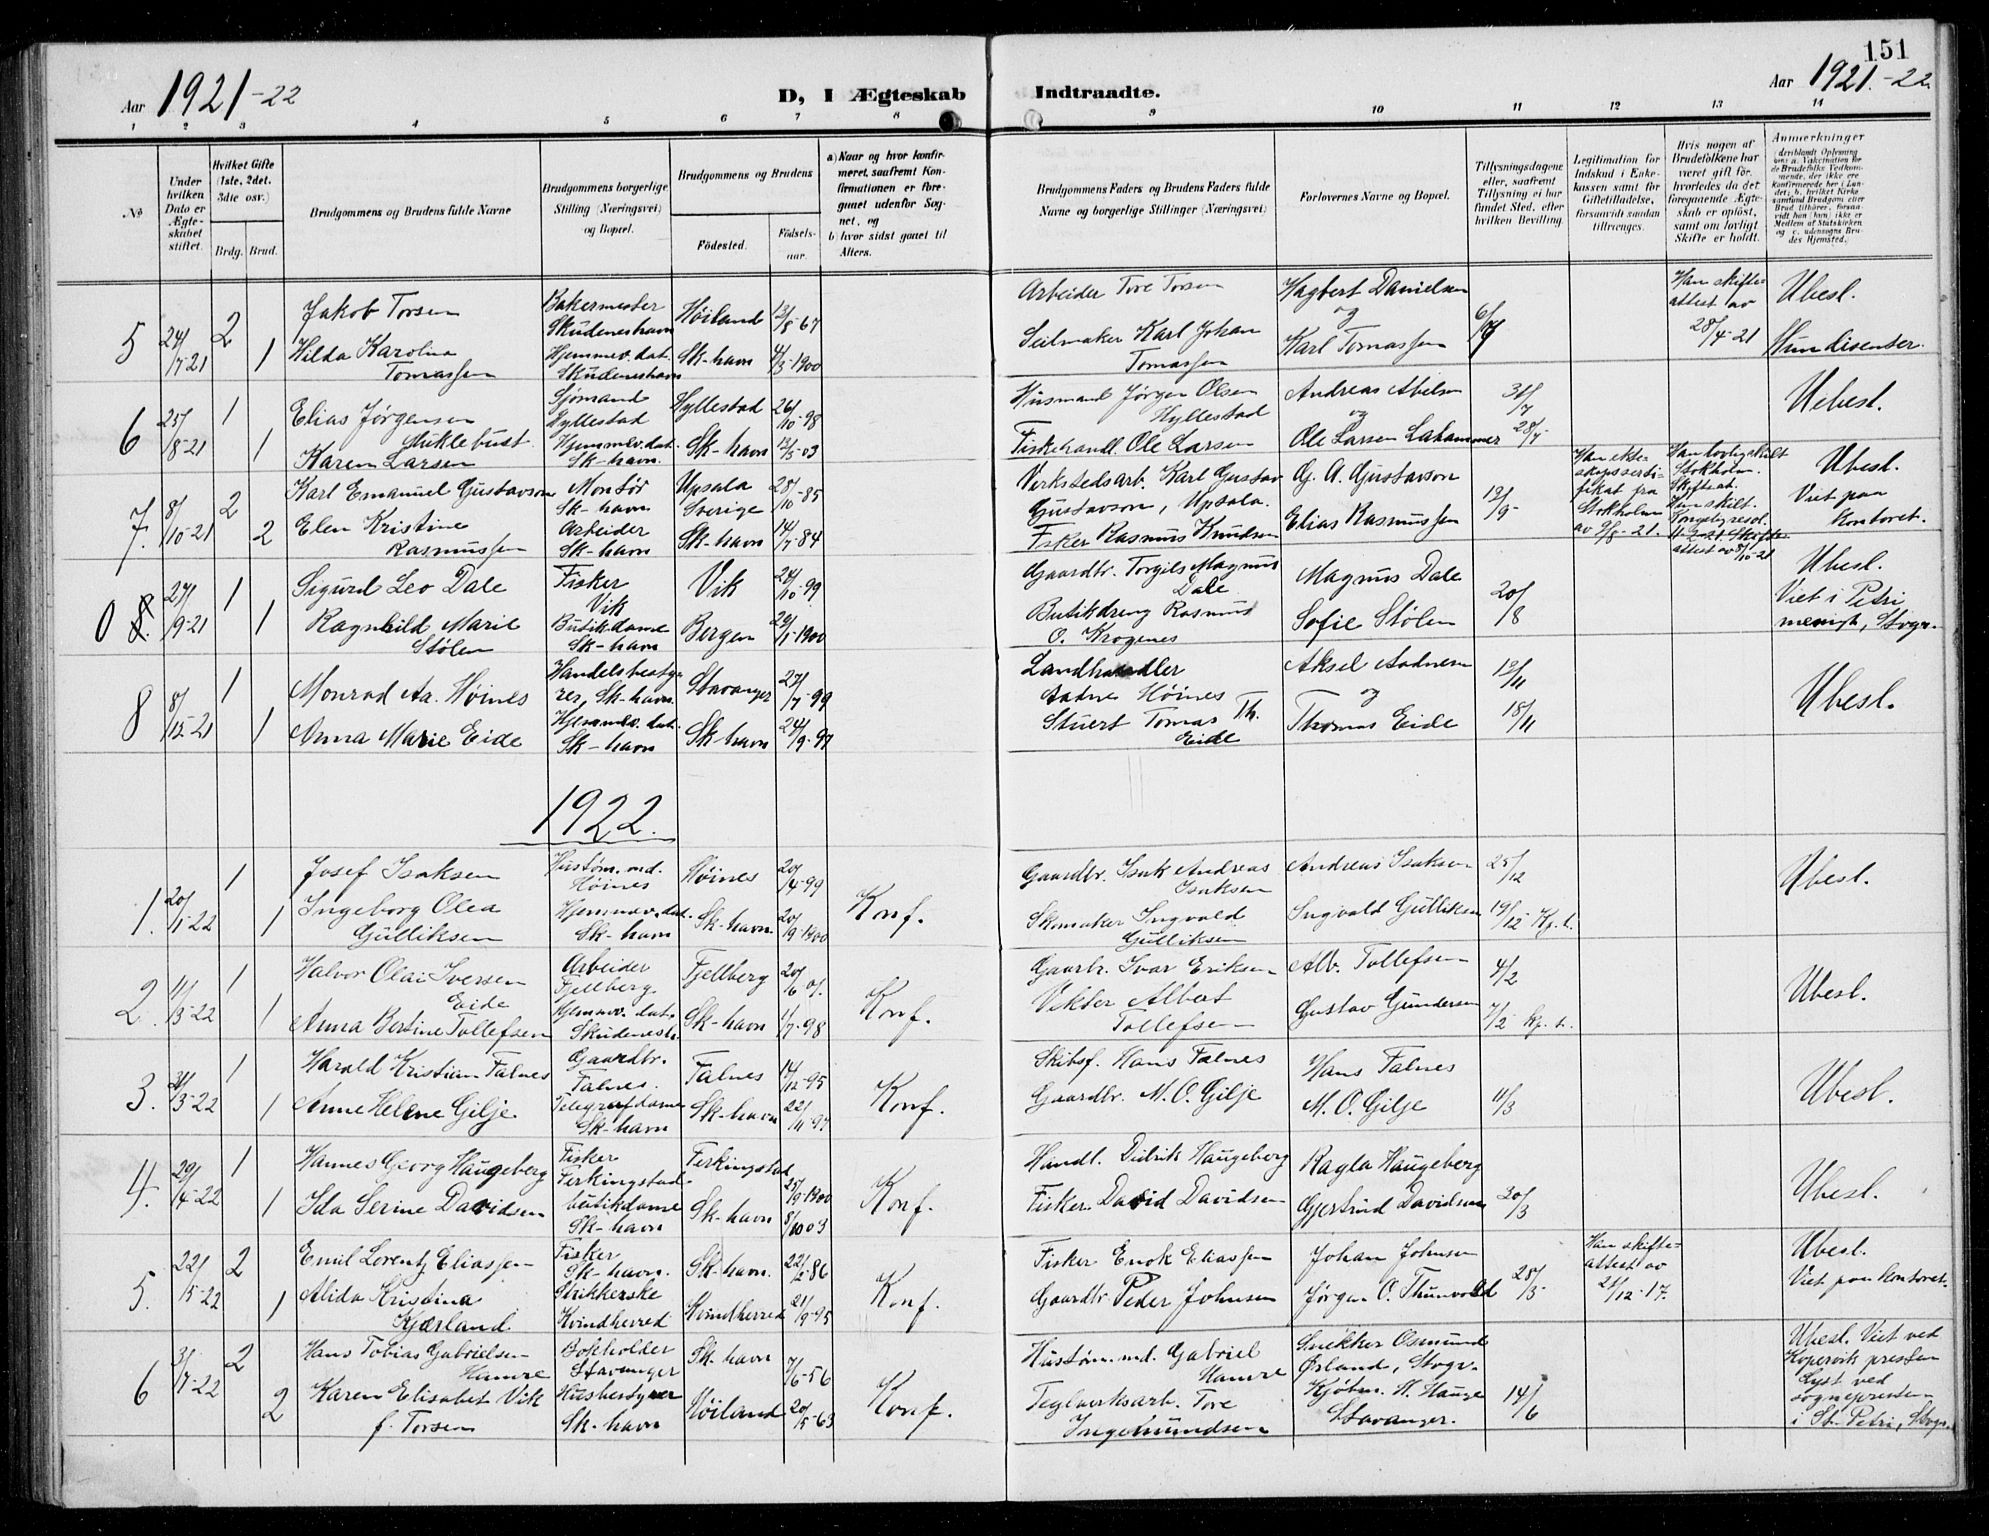 151
Aar 1921-22
D, I Ægteskab Indtraadte.
Aar 1921-22
1 2 3 4 5 6 7 8 9 10 11 12 13 14
No
Under hvilken Dato er Ægteskabet stiftet.
Hvilket Gifte (1ste, 2det. 3die osv.)
Brdg. Brud.
Brudgommens og Brudens fulde Navne
Brudgommens borgerlige Stilling (Næringsvei) og Bopæl.
Brudgommens og Brudens
Födested.
Födselsaar.
a) Naar og hvor konfirmeret, saafremt Konfirmationen er foregaaet udenfor Sognet, og
b) hvor sidst gaaet til Alters.
Brudgommens Faders og Brudens Faders fulde Navne og borgerlige Stillinger (Næringsvei)
Forlovernes Navne og Bopæl.
Tillysningsdagene eller, saafremt Tillysning ei har fundet Sted, efter hvilken Bevilling.
Legitimation for Indskud i Enkekassen samt for Giftetilladelse, forsaavidt saadan tiltrænges.
Hvis nogen af Brudefolkene har været gift før, hvorledes da det foregaaende Ægteskab er oplöst, samt om lovligt Skifte er holdt.
Anmerkninger
5 24/7-21 2 Jakob Torsen Bakermester Skudeneshavn Høiland 12/8-67 Arbeider Tore Torsen Hagbert Danielsen og 6/7 Han skifteattest av 28/4-21 Ubesl.
1 Hilda Karolina Tomassen Hjemmev. dat. Skudeneshavn Sk-havn 4/3-1900 Seilmaker Karl Johan Tomassen Karl Tomassen Hun disenter.
6 25/8-21 1 Elias Jørgensen Müklebust Sjømand Hyllestad Hyllestad 26/10-98 Husmand Jørgen Olsen Hyllestad Andreas Abelsen og 31/7 Uebesl.
1 Karen Larsen Hjemmev. dat. Sk-havn. Sk-havn 12/5-03 Fiskehandl. Ole Larsen Ole Larsen Lahammer 28/7-
7. 8/10-21 2 Karl Emanuel Gustavson Montør Sk-havn Upsala Sverige 28/10-85 Verkstedsarb. Karl Gustav Gustavson, Upsala. G. A. Gustavson 12/9- Han ekteskapssertifikat fra Stokholm av 9/8-21. Han lovlig skilt Stokholm. Skifteat. Ubesl. Viet paa kontoret.
2 Elen Kristine Rasmussen Arbeider Sk-havn Sk-havn 14/7-84 Fisker Rasmus Knudsen Elias Rasmussen Hun skilt. attest av 8/10-21
0 8. 27/9-21 1 Sigurd Leo Dale Fisker Vik Vik 24/10-99 Gaardbr. Torgils Magnus Dale Magnus Dale 20/8 Ubesl. Viet i Petri menigh, Stvgr.
1 Ragnhild Marie Stølen Butikdame Sk-havn Bergen 29/1-1900 Butikdreng Rasmus O. Krogenes Sofie Stølen
8 8/12-21 1 Monrad Aa. Høines Handelsbestyrer, Sk-havn. Stavanger 27/7-99 Landhandler Aadne Høines Aksel Aadnesen og 12/11 Ubesl.
1 Anna Marie Eide Hjemmev. dat. Sk-havn Sk-havn 24/9-97 Stuert Tomas Th. Eide Thomas Eide 18/11
1922.
1. 20/1-22 1 Josef Isaksen Hustøm. md. Høines Høines 20/4-99 Konf. Gaardbr. Isak Andreas Isaksen Andreas Isaksen 25/12 Ubesl.
1 Ingeborg Olea Gulliksen Hjemmev. dat. Sk-havn Sk-havn 20/9-1900 Skomaker Ingvald Gulliksen Ingvald Gulliksen 19/12 Kp. t.
2. 11/3-22 1 Halvor Olai Iversen Eide Arbeider Fjellberg. Fjellberg 20/6 01. Konf. Gaarbr. Ivar Eriksen Alb. Tollefsen 4/2 Ubesl.
1 Anna Bertine Tollefsen Hjemmev. dat. Skudenesh. Sk-havn 1/7-98 Viktor Albert Tollefsen Gustav Gundersen 7/2 Kp. t.
3. 31/3-22 1 Harald Kristian Falnes Gaardbr. Falnes. Falnes 14/12-95 Konf. Skibsf. Hans Falnes Hans Falnes 11/3 Ubesl.
1 Anne Helene Gilje. Telegrafdame Sk-havn Sk-havn 22/11-97 Gaardbr. M. O. Gilje M. O. Gilje
4. 29/4-22 1 Hannes Georg Haugeberg Fisker Ferkingstad. Ferkingstad 25/9-1900 Konf. Handl. Didrik Haugeberg Ragla Haugeberg 20/3 Ubesl.
1 Ida Serine Davidsen butikdame Sk-havn Sk-havn 8/10 03 Fisker. David Davidsen Gjertrud Davidsen
5. 22/5-22 2 Emil Lorentz Eliassen Fisker Sk-havn. Sk-havn. 22/2-86 Konf. Fisker Enok Eliassen Johan Johnsen 28/3- Han skifteattest av 21/12-17. Ubesl. Viet paa kontoret.
1 Alida Kristina Kjærland. Strikkerske Kvindherred Kvindherred 21/9-95 Gaardbr. Peder Johnsen Jørgen O. Thunvold
6 3/7-22 2 Hans Tobias Gabrielsen Hamre Bokholder Stavanger Sk-havn 7/6-56 Konf. Hustøm. md. Gabriel Hamre Snekker Osmund Ørland, Stvgr. 14/6 Ubesl. Viet ved Kopervik presten Lyst ved sognepresten i St. Petri, Stvgr.
2 Karen Elisabet Vik f. Torsen Husbestyrer Sk-havn Høiland 20/5-63 Teglverksarb. Tore Ingemundsen Kjøbm. H. Hauge Stavanger.